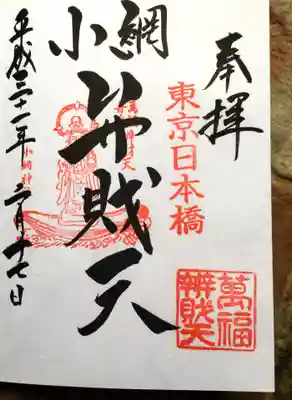 奉拝
東京日本橋
萬福
辨財天
小網
弁財天
平成三十一年二月十七日